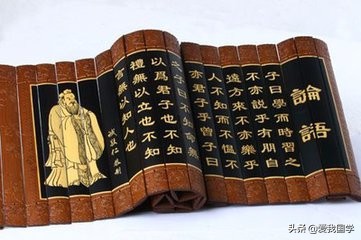 論語
子曰學而時習之
不亦説乎有朋自
遠方來不亦樂乎
人不知而不愠不
亦君子乎曾子曰
以爲君子也不知
禮無以立也不知
言無以知人也
头条 @爱我国学